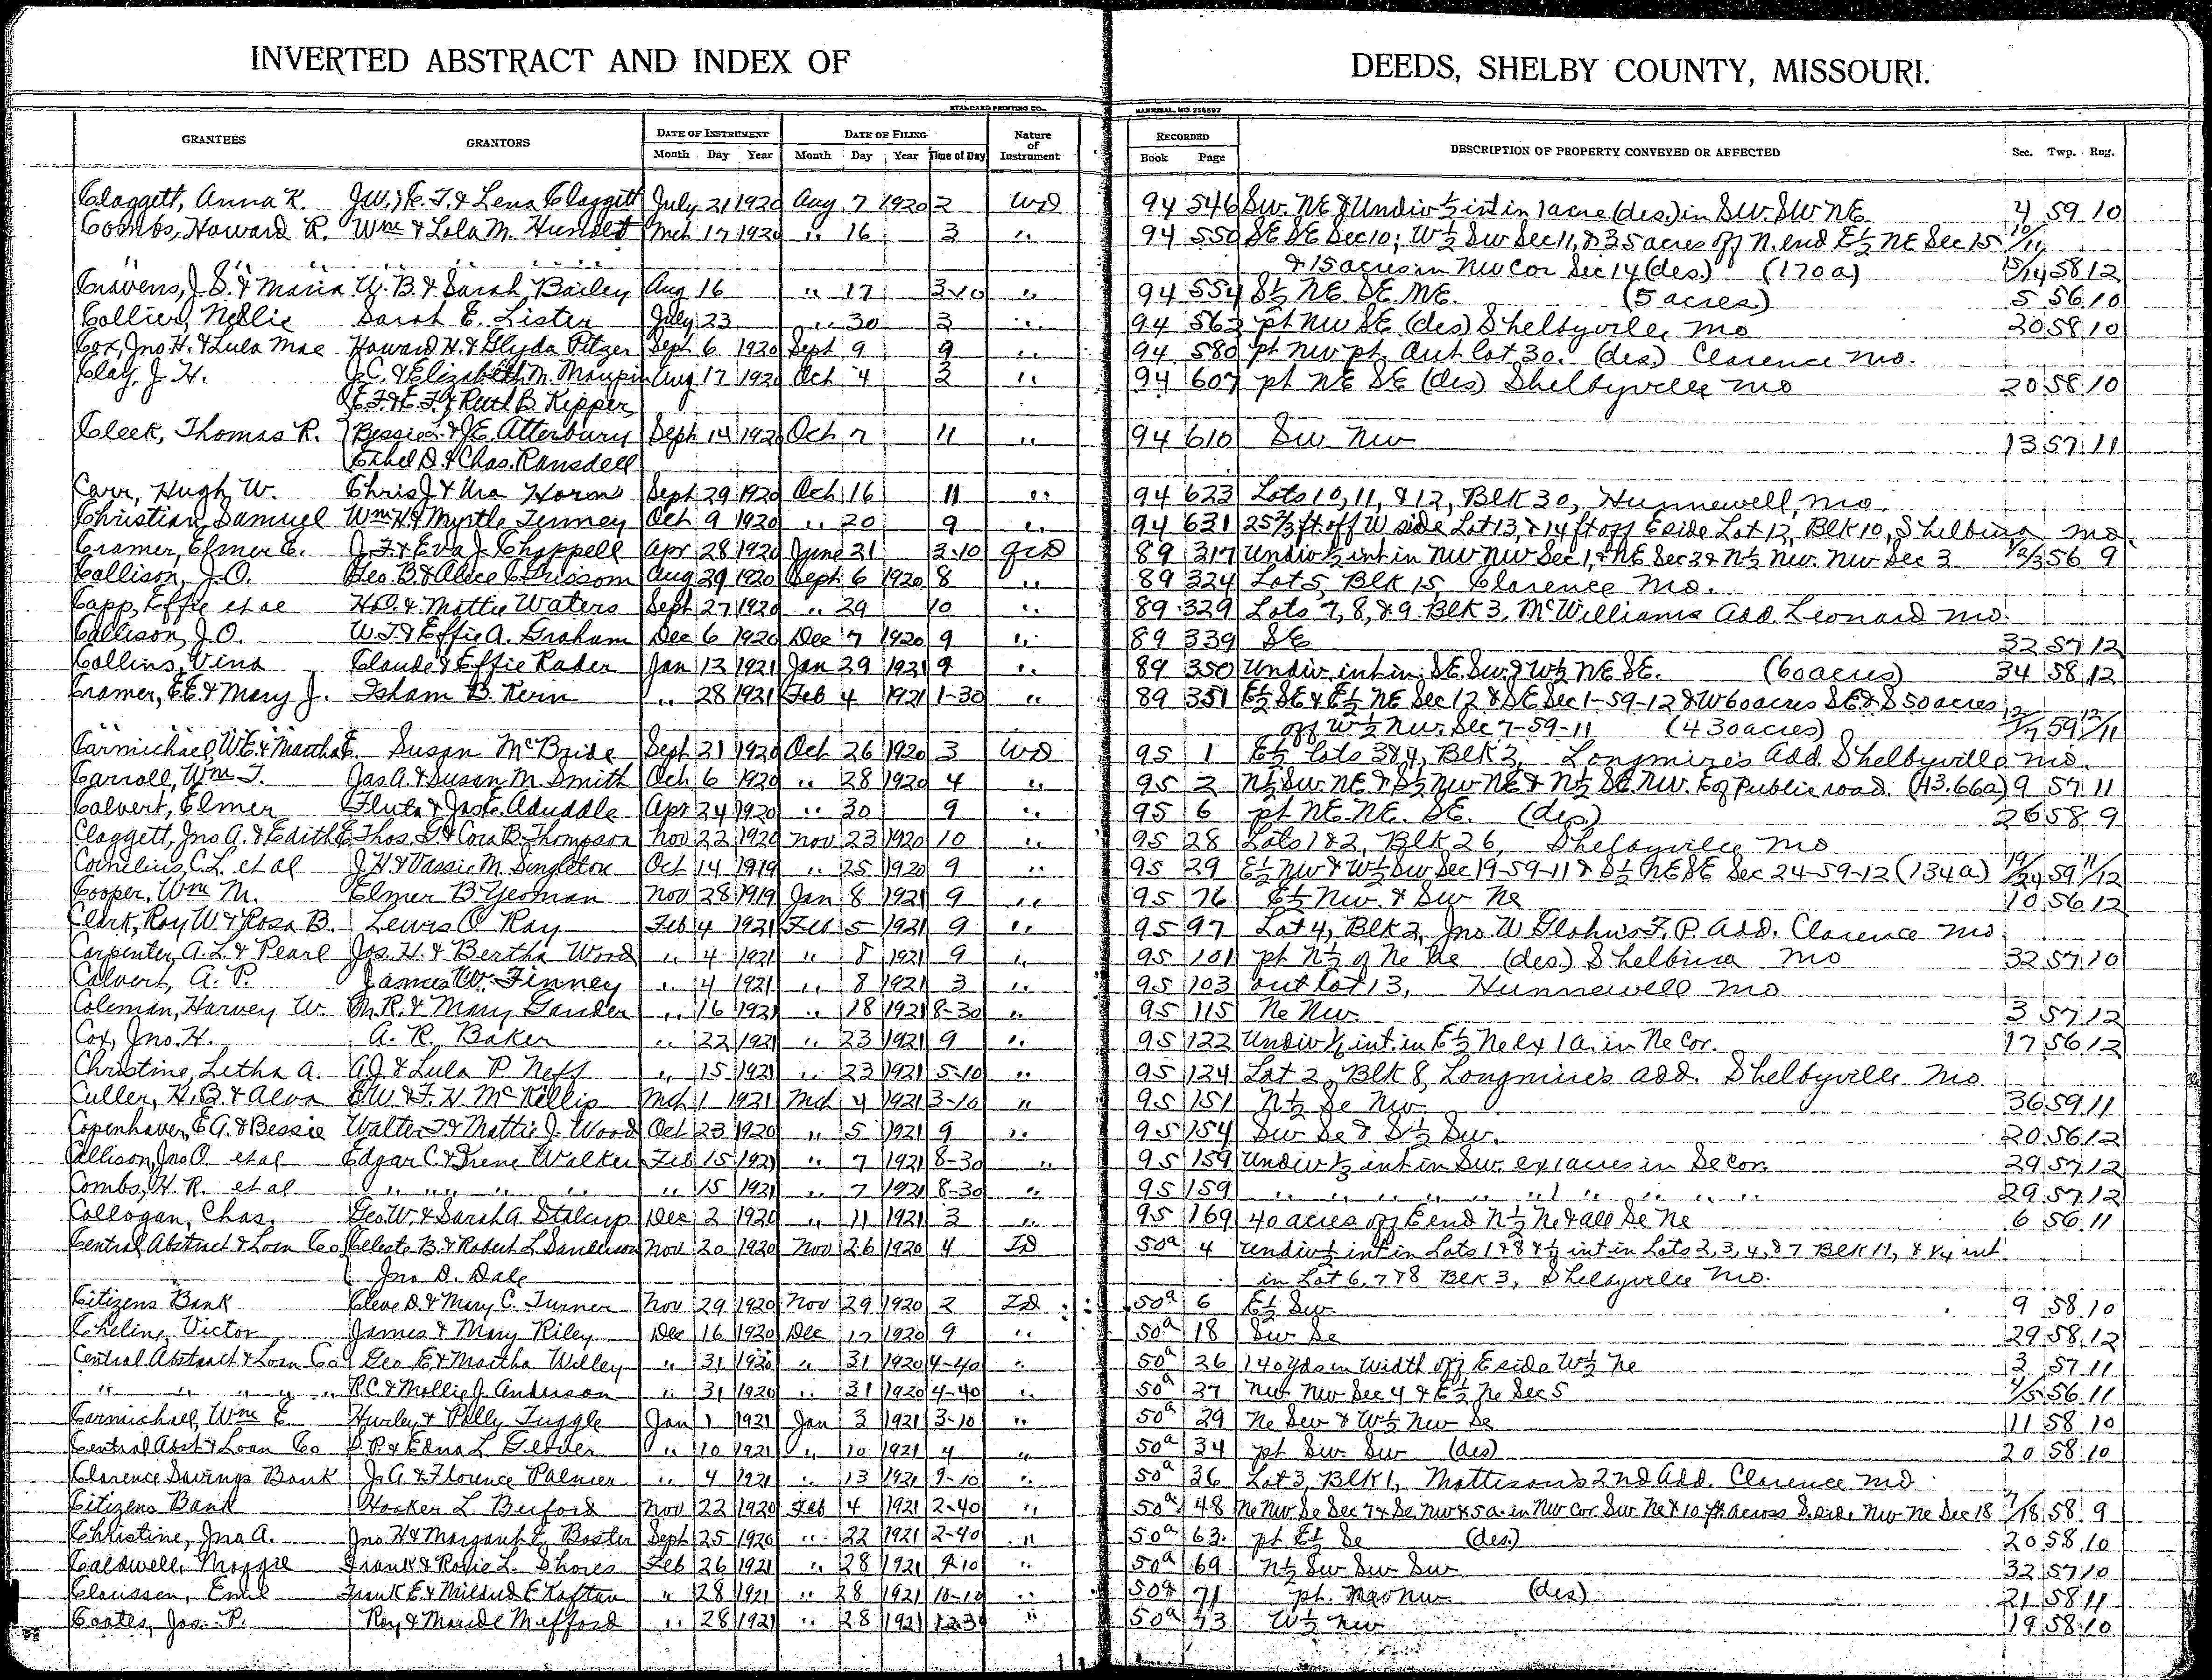 INVERTED ABSTRACT AND INDEX OF DEEDS, SHELBY COUNTY, MISSOURI.
STANDARD PRINTING CO., HANNIBAL, MO
GRANTEES GRANTORS DATE OF INSTRUMENT DATE OF FILING Nature of Instrument RECORDED DESCRIPTION OF PROPERTY CONVEYED OR AFFECTED Sec. Twp. Rng.
Month Day Year Month Day Year Time of Day Book Page
Claggett, Anna K. J.W.; E. T. & Lena Claggett July 21 1920 Aug 7 1920 2 WD 94 546 SW. NE & Undiv ½ int in 1 acre (des.) in SW. SW NE 4 59 10
Combs, Howard R. Wm & Lola M. Hunolt Mch 17 1920 " 16 3 " 94 550 SE SE Sec 10; W½ SW Sec 11, & 35 acres off N. end E½ NE Sec 15 10/11
" " " " " " " & 15 acres in NW Cor Sec 14 (des.) (170 a) 15/14 58 12
Cravens, J. S. & Maria W. B. & Sarah Bailey Aug 16 " 17 3-10 " 94 554 S½ NE. SE. NE. (5 acres) 5 56 10
Collier, Nellie Sarah E. Lister July 23 " 30 3 " 94 563 pt NW SE (des) Shelbyville, Mo 20 58 10
Cox, Jno H. & Lula Mae Howard H. & Glyda Pitzer Sept 6 1920 Sept 9 9 " 94 580 pt NW pt. Out lot 30. (des) Clarence Mo.
Clay, J. H. J. C. & Elizabeth M. Maupin Aug 17 1920 Oct 4 3 " 94 607 pt NE SE (des) Shelbyville Mo 20 58 10
E. F. & E. F. & Ruth B. Kipper
Cleek, Thomas R. Bessie L. & J.E. Atterbury Sept 14 1920 Oct 7 11 " 94 610 SW NW 13 57 11
Ethel D. & Chas. Ransdell
Carr, Hugh W. Chris J & Ura Horn Sept 29 1920 Oct 16 11 " 94 623 Lots 10, 11, & 12, Blk 30, Hunnewell, Mo.
Christian, Samuel Wm H & Myrtle Tenney Oct 9 1920 " 20 9 " 94 631 25⅔ ft. off W side Lot 13, & 14 ft off E side Lot 12, Blk 10, Shelbina Mo
Cramer, Elmer E. J. F. & Eva J. Chappell Apr 28 1920 June 21 3-10 QCD 89 317 Undiv ½ int in NW NW Sec 1, & NE Sec 2 & N½ NW. NW Sec 3 1/2/3 56 9
Callison, J. O. Geo. B. & Alice C Grissom Aug 29 1920 Sept 6 1920 8 " 89 324 Lot 5, Blk 15, Clarence Mo.
Capp, Effie et al H. O. & Mattie Waters Sept 27 1920 " 29 10 " 89 329 Lots 7, 8, & 9. Blk 3, McWilliams Add. Leonard Mo.
Callison, J. O. W. T. & Effie A. Graham Dec 6 1920 Dec 7 1920 9 " 89 339 SE 32 57 12
Collins, Vina Claude & Effie Rader Jan 13 1921 Jan 29 1921 9 " 89 350 Undiv. int in: SE. SW. & W½ NE SE. (60 acres) 34 58 12
Cramer, E.E. & Mary J. Isham B. Kern " 28 1921 Feb 4 1921 1-30 " 89 351 E½ SE & E½ NE Sec 12 & SE Sec 1-59-12 & W 60 acres SE & S 50 acres 12
off W½ NW. Sec 7-59-11 (430 acres) 1/7 59 12/11
Carmichael, W.E. & Martha E. Susan McBride Sept 21 1920 Oct 26 1920 3 WD 95 1 E½ Lots 3 & 4, Blk 3, Longmire's Add. Shelbyville Mo.
Carroll, Wm T. Jas A. & Susan M. Smith Oct 6 1920 " 28 1920 4 " 95 2 N½ SW. NE & S½ NW NE & N½ SE NW. E of Public road. (43.66a) 9 57 11
Calvert, Elmer Fluta & Jas E. Aduddle Apr 24 1920 " 30 9 " 95 6 pt NE. NE. SE. (des.) 26 58 9
Claggett, Jno A. & Edith E. Thos. G & Cora B. Thompson Nov 22 1920 Nov 23 1920 10 " 95 28 Lots 1 & 2, Blk 26, Shelbyville Mo
Cornelius, C. L. et al J. H & Vassie M. Singleton Oct 14 1919 " 25 1920 9 " 95 29 E½ NW & W½ SW Sec 19-59-11 & S½ NE SE Sec 24-59-12 (134a) 19/24 59 11/12
Cooper, Wm M. Elmer B Yeoman Nov 28 1919 Jan 8 1921 9 " 95 76 E½ NW. & SW NE 10 56 12
Clark, Roy W. & Rosa B. Lewis O Ray Feb 4 1921 Feb 5 1921 9 " 95 97 Lot 4, Blk 2, Jno W Glahn's F. P. Add. Clarence Mo
Carpenter, A. L. & Pearl Jos. H. & Bertha Wood " 4 1921 " 8 1921 9 " 95 101 pt N½ of NE NE (des.) Shelbina Mo 32 57 10
Calvert, A. P. James W. Finney " 4 1921 " 8 1921 3 " 95 103 Out lot 13, Hunnewell Mo
Coleman, Harvey W. M. R. & Mary Gander " 16 1921 " 18 1921 8-30 " 95 115 Ne Nw. 3 57 12
Cox, Jno. H. A. R. Baker " 22 1921 " 23 1921 9 " 95 122 Undiv ½ int. in E½ Ne ex 1a. in Ne Cor. 17 56 12
Christine, Letha A. A.J. & Lula P. Neff " 15 1921 " 23 1921 5-10 " 95 124 Lot 2, Blk 8, Longmire's Add. Shelbyville Mo
Culler, H. B. & Alva F. H. McKillip Mch 1 1921 Mch 4 1921 3-10 " 95 151 N½ Se Nw 36 59 11
Copenhaver, E G. & Bessie Walter T & Mattie J. Wood Oct 23 1920 " 5 1921 9 " 95 154 Sw Se & S½ Sw. 20 56 12
Callison, Jno O. et al Edgar C. & Irene Walker Feb 15 1921 " 7 1921 8-30 " 95 159 Undiv ½ int in Sw. ex 1 acres in Se cor. 29 57 12
Combs, H. R. et al " " " " " 15 1921 " 7 1921 8-30 " 95 159 " " " " " " " " " 29 57 12
Collogan, Chas. Geo W. & Sarah A. Stalcup Dec 2 1920 " 11 1921 3 " 95 169 40 acres off E end N½ Ne & all Se Ne 6 56 11
Central Abstract & Loan Co Celeste B. & Robert L Sanderson Nov 20 1920 Nov 26 1920 4 TD 50a 4 Undiv ½ int in Lots 1 & 8 & ½ int in Lots 2, 3, 4, & 7 Blk 11, & ¼ int
Jno D. Dale in Lot 6, 7 & 8 Blk 3, Shelbyville Mo.
Citizens Bank Cleve D. & Mary C. Turner Nov 29 1920 Nov 29 1920 2 TD 50a 6 E½ Sw. 9 58 10
Cheline, Victor James & Mary Riley Dec 16 1920 Dec 17 1920 9 " 50a 18 Sw Se 29 58 12
Central Abstract & Loan Co Geo E & Martha Willey " 31 1920 " 31 1920 4-40 " 50a 26 140 yds in Width off E side W½ Ne 3 57 11
" " " " " R.C. & Mollie J. Anderson " 31 1920 " 31 1920 4-40 " 50a 27 Nw Nw Sec 4 & E½ Ne Sec 5 4/5 56 11
Carmichael, Wm E Hurley & Polly Tuggle Jan 1 1921 Jan 3 1921 3-10 " 50a 29 Ne Sw & W½ Nw Se 11 58 10
Central Abst & Loan Co & Edna L " 10 1921 " 10 1921 4 " 50a 34 pt Sw. Sw (des) 20 58 10
Clarence Savings Bank J. A. & Florence Palmer " 4 1921 " 13 1921 9-10 " 50a 36 Lot 3, Blk 1, Mattison's 2nd Add. Clarence Mo
Citizens Bank Hooker L Buford Nov 22 1920 Feb 4 1921 2-40 " 50a 48 Ne Nw Se Sec 7 & Se Nw & 5 a. in Nw Cor Sw Ne & 10 ft. across S. side Nw Ne Sec 18 7/18 58 9
Christine, Jno A. Jno H & Margaret E. Baster Sept 25 1920 " 22 1921 2-40 " 50a 63 pt E½ Se (des.) 20 58 10
Caldwell, Maggie Frank & Rosie L. Shores Feb 26 1921 " 28 1921 9-10 " 50a 69 N½ Sw Sw Sw 32 57 10
Claussen, Emil Frank E. & Mildred E Kaftan " 28 1921 " 28 1921 10-10 " 50a 71 pt. Nw (des) 21 58 11
Coates, Jas. P. Roy & Maude Mefford " 28 1921 " 28 1921 " 50a 73 W½ Nw 19 58 10